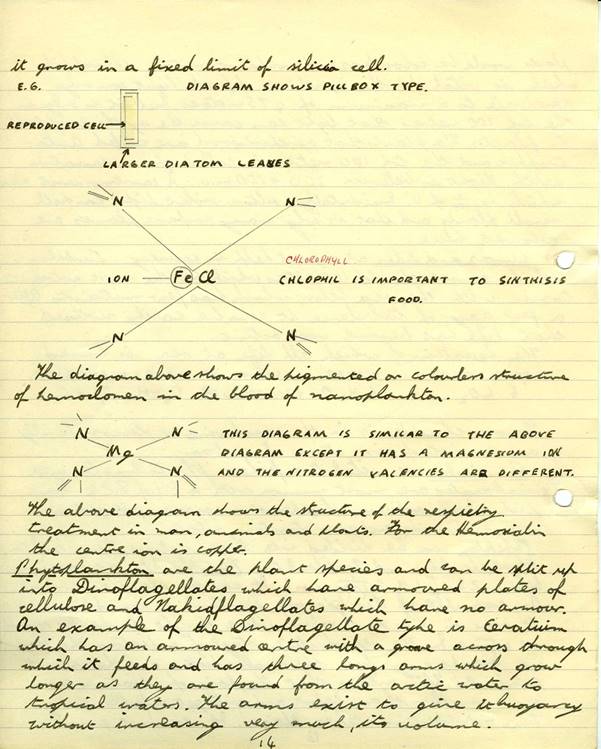 it grows in a fixed limit of silicia cell.
E.G. DIAGRAM SHOWS PILLBOX TYPE.
REPRODUCED CELL
LARGER DIATOM LEAVES
N N
CHLOROPHYLL
ION Fe Cl CHLOPHIL IS IMPORTANT TO SINTHISIS
FOOD.
N N
The diagram above shows the pigmented or colourless structure
of hemoclomen in the blood of nanoplankton.
N N THIS DIAGRAM IS SIMILAR TO THE ABOVE
Mg DIAGRAM EXCEPT IT HAS A MAGNESIUM ION
N N AND THE NITROGEN VALENCIES ARE DIFFERENT.
The above diagram shows the structure of the respietry
treatment in man, animals and plants. For the Hemosialin
the centre ion is copper.
Phytplankton are the plant species and can be split up
into Dinoflagellates which have armoured plates of
cellulose and Nakidflagellates which have no armour.
An example of the Dinoflagellate type is Ceratium
which has an armoured centre with a grove across through
which it feeds and has three longs arms which grow
longer as they are found from the arctic water to
tropical waters. The arms exist to give it buoyancy
without increasing very much, its volume.
14